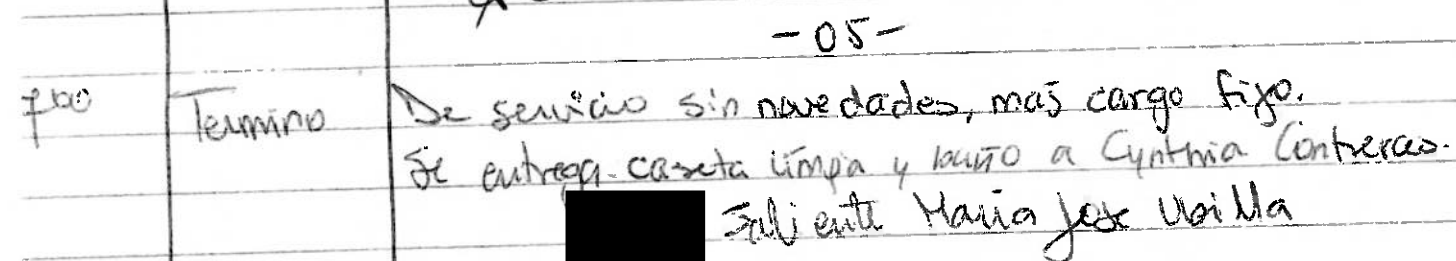 -05-
700 Termino De servicio sin novedades, mas cargo fijo.
Se entrega caseta limpia y baño a Cynthia Contreras.
Saliente Maria Jose Ubilla